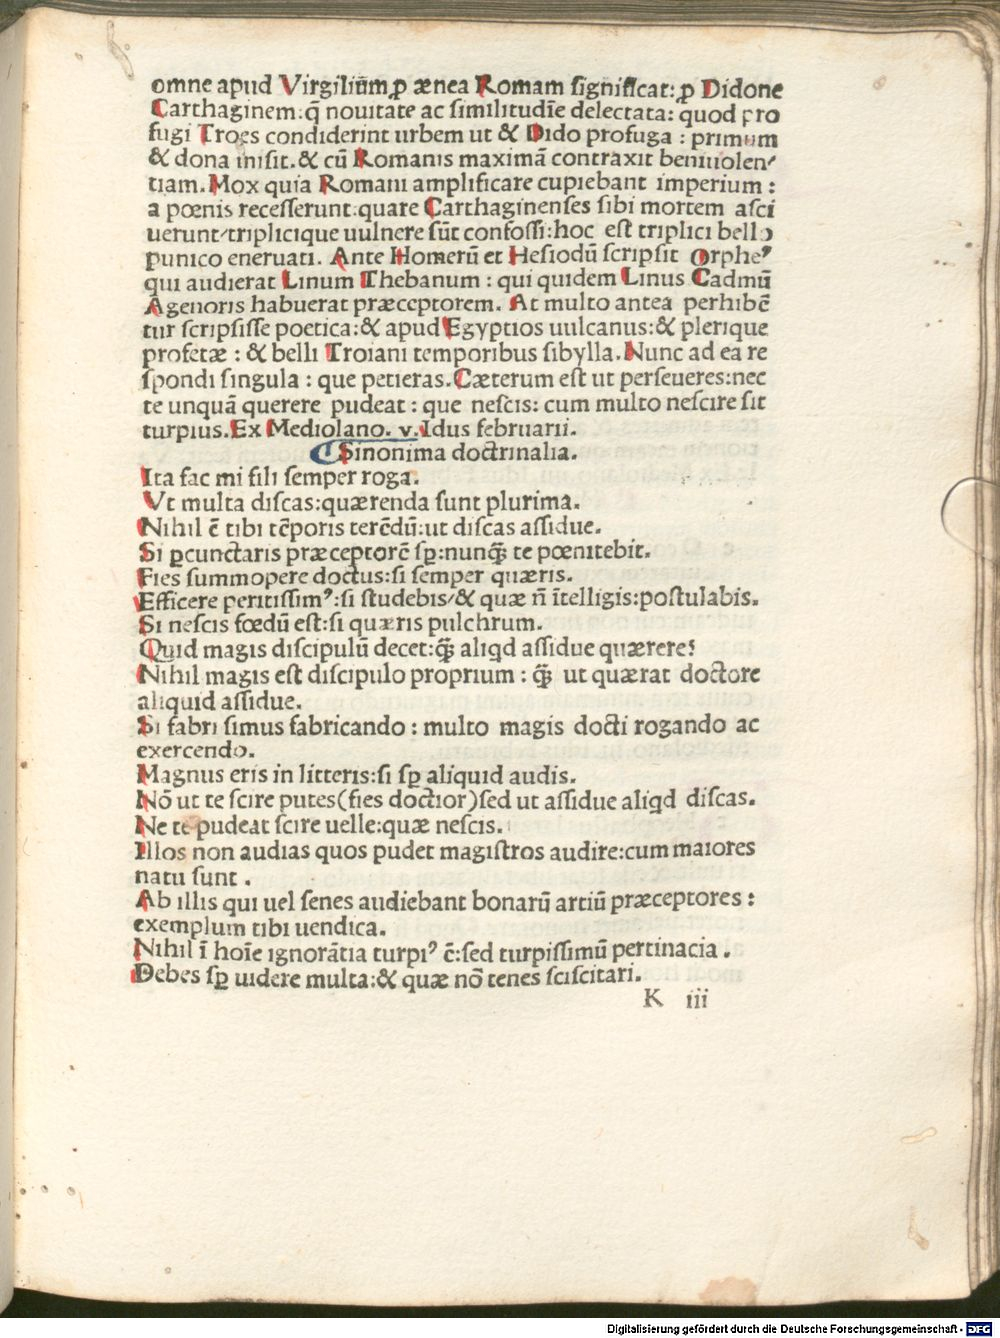 omne apud Virgiliũm ꝓ ænea Romam significat: ꝓ Didone
Carthaginem: q̃ nouitate ac similitudĩe delectata: quod pro
fugi Troes condiderint urbem ut & Dido profuga : primum
& dona misit. & cũ Romanis maximã contraxit beniuolen/
tiam. Mox quia Romani amplificare cupiebant imperium :
a pœnis recesserunt: quare Carthaginenses sibi mortem asci
uerunt/triplicique uulnere sũt confossi: hoc est triplici bello
punico eneruati. Ante Homerũ et Hesiodũ scripsit Orpheꝰ
qui audierat Linum Thebanum : qui quidem Linus Cadmũ
Agenoris habuerat præceptorem. At multo antea perhibẽ
tur scripsisse poetica: & apud Egyptios uulcanus: & plerique
profetæ : & belli Troiani temporibus sibylla. Nunc ad ea re
spondi singula : que petieras. Cæterum est ut perseueres: nec
te unquã querere pudeat : que nescis: cum multo nescire sit
turpius. Ex Mediolano. v. Idus februarii.
Sinonima doctrinalia.
Ita fac mi fili semper roga.
Vt multa discas: quærenda sunt plurima.
Nihil ẽ tibi tẽporis terẽdũ: ut discas assidue.
Si ꝑcunctaris præceptorẽ sꝑ: nunq̃ te pœnitebit.
Fies summopere doctus: si semper quæris.
Efficere peritissimꝰ: si studebis/& quæ ñ ĩtelligis: postulabis.
Si nescis fœdũ est: si quæris pulchrum.
Quid magis discipulũ decet: q̃ͣ aliqd assidue quærere?
Nihil magis est discipulo proprium : q̃ͣ ut quærat doctore
aliquid assidue.
Si fabri simus fabricando : multo magis docti rogando ac
exercendo.
Magnus eris in litteris: si sꝑ aliquid audis.
Nõ ut te scire putes (fies doctior) sed ut assidue aliqd discas.
Ne te pudeat scire uelle: quæ nescis.
Illos non audias quos pudet magistros audire: cum maiores
natu sunt .
Ab illis qui uel senes audiebant bonarũ artiũ præceptores :
exemplum tibi uendica.
Nihil ĩ hoĩe ignorãtia turpiꝰ ẽ: sed turpissimũ pertinacia .
Debes sꝑ uidere multa: & quæ nõ tenes sciscitari.
K iii
Digitalisierung gefördert durch die Deutsche Forschungsgemeinschaft - DFG